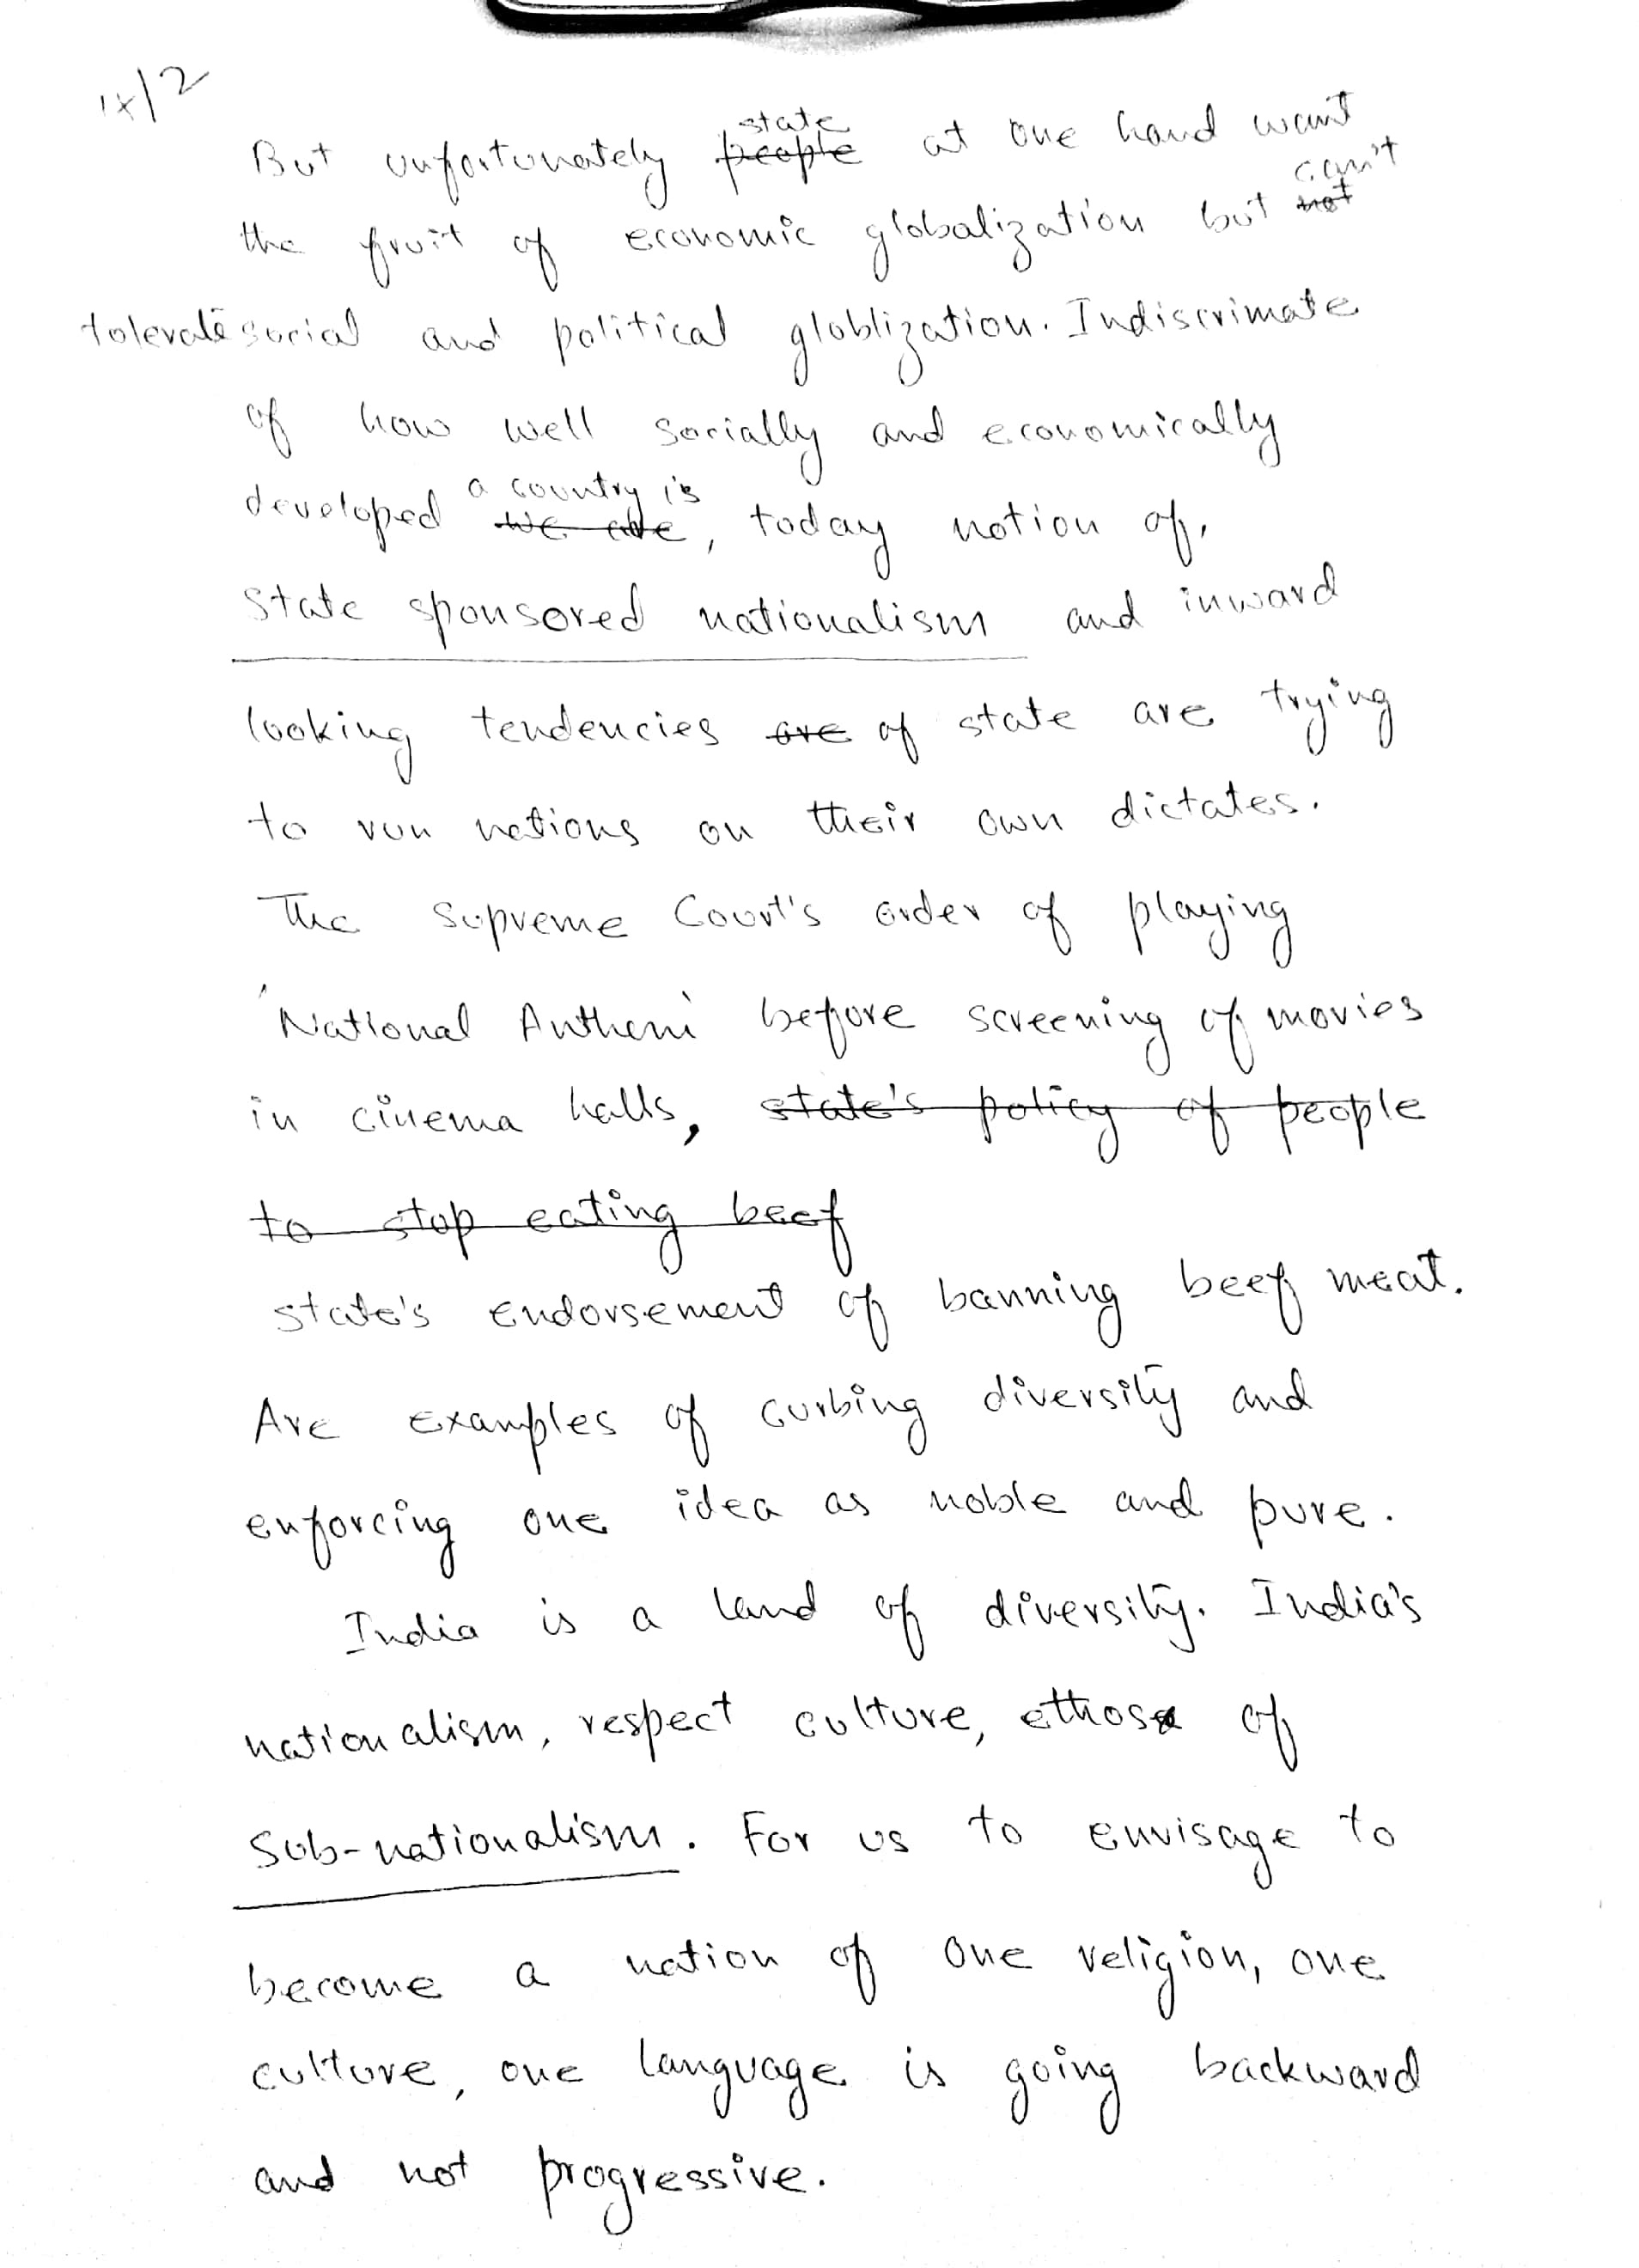 1x/2
But unfortunately ~~people~~ state at one hand want
the fruit of economic globalization but ~~not~~ can't
tolerate social and political globlization. Indiscrimate
of how well socially and economically
developed ~~we are~~ a country is, today notion of
state sponsored nationalism and inward
looking tendencies ~~are~~ of state are trying
to run nations on their own dictates.
The Supreme Court's order of playing
'National Anthem' before screening of movies
in cinema halls, ~~state's policy of people~~
~~to stop eating beef~~
state's endorsement of banning beef meat.
Are examples of curbing diversity and
enforcing one idea as noble and pure.
India is a land of diversity. India's
nationalism, respect culture, ethos of
Sub-nationalism. For us to envisage to
become a nation of one religion, one
culture, one language is going backward
and not progressive.